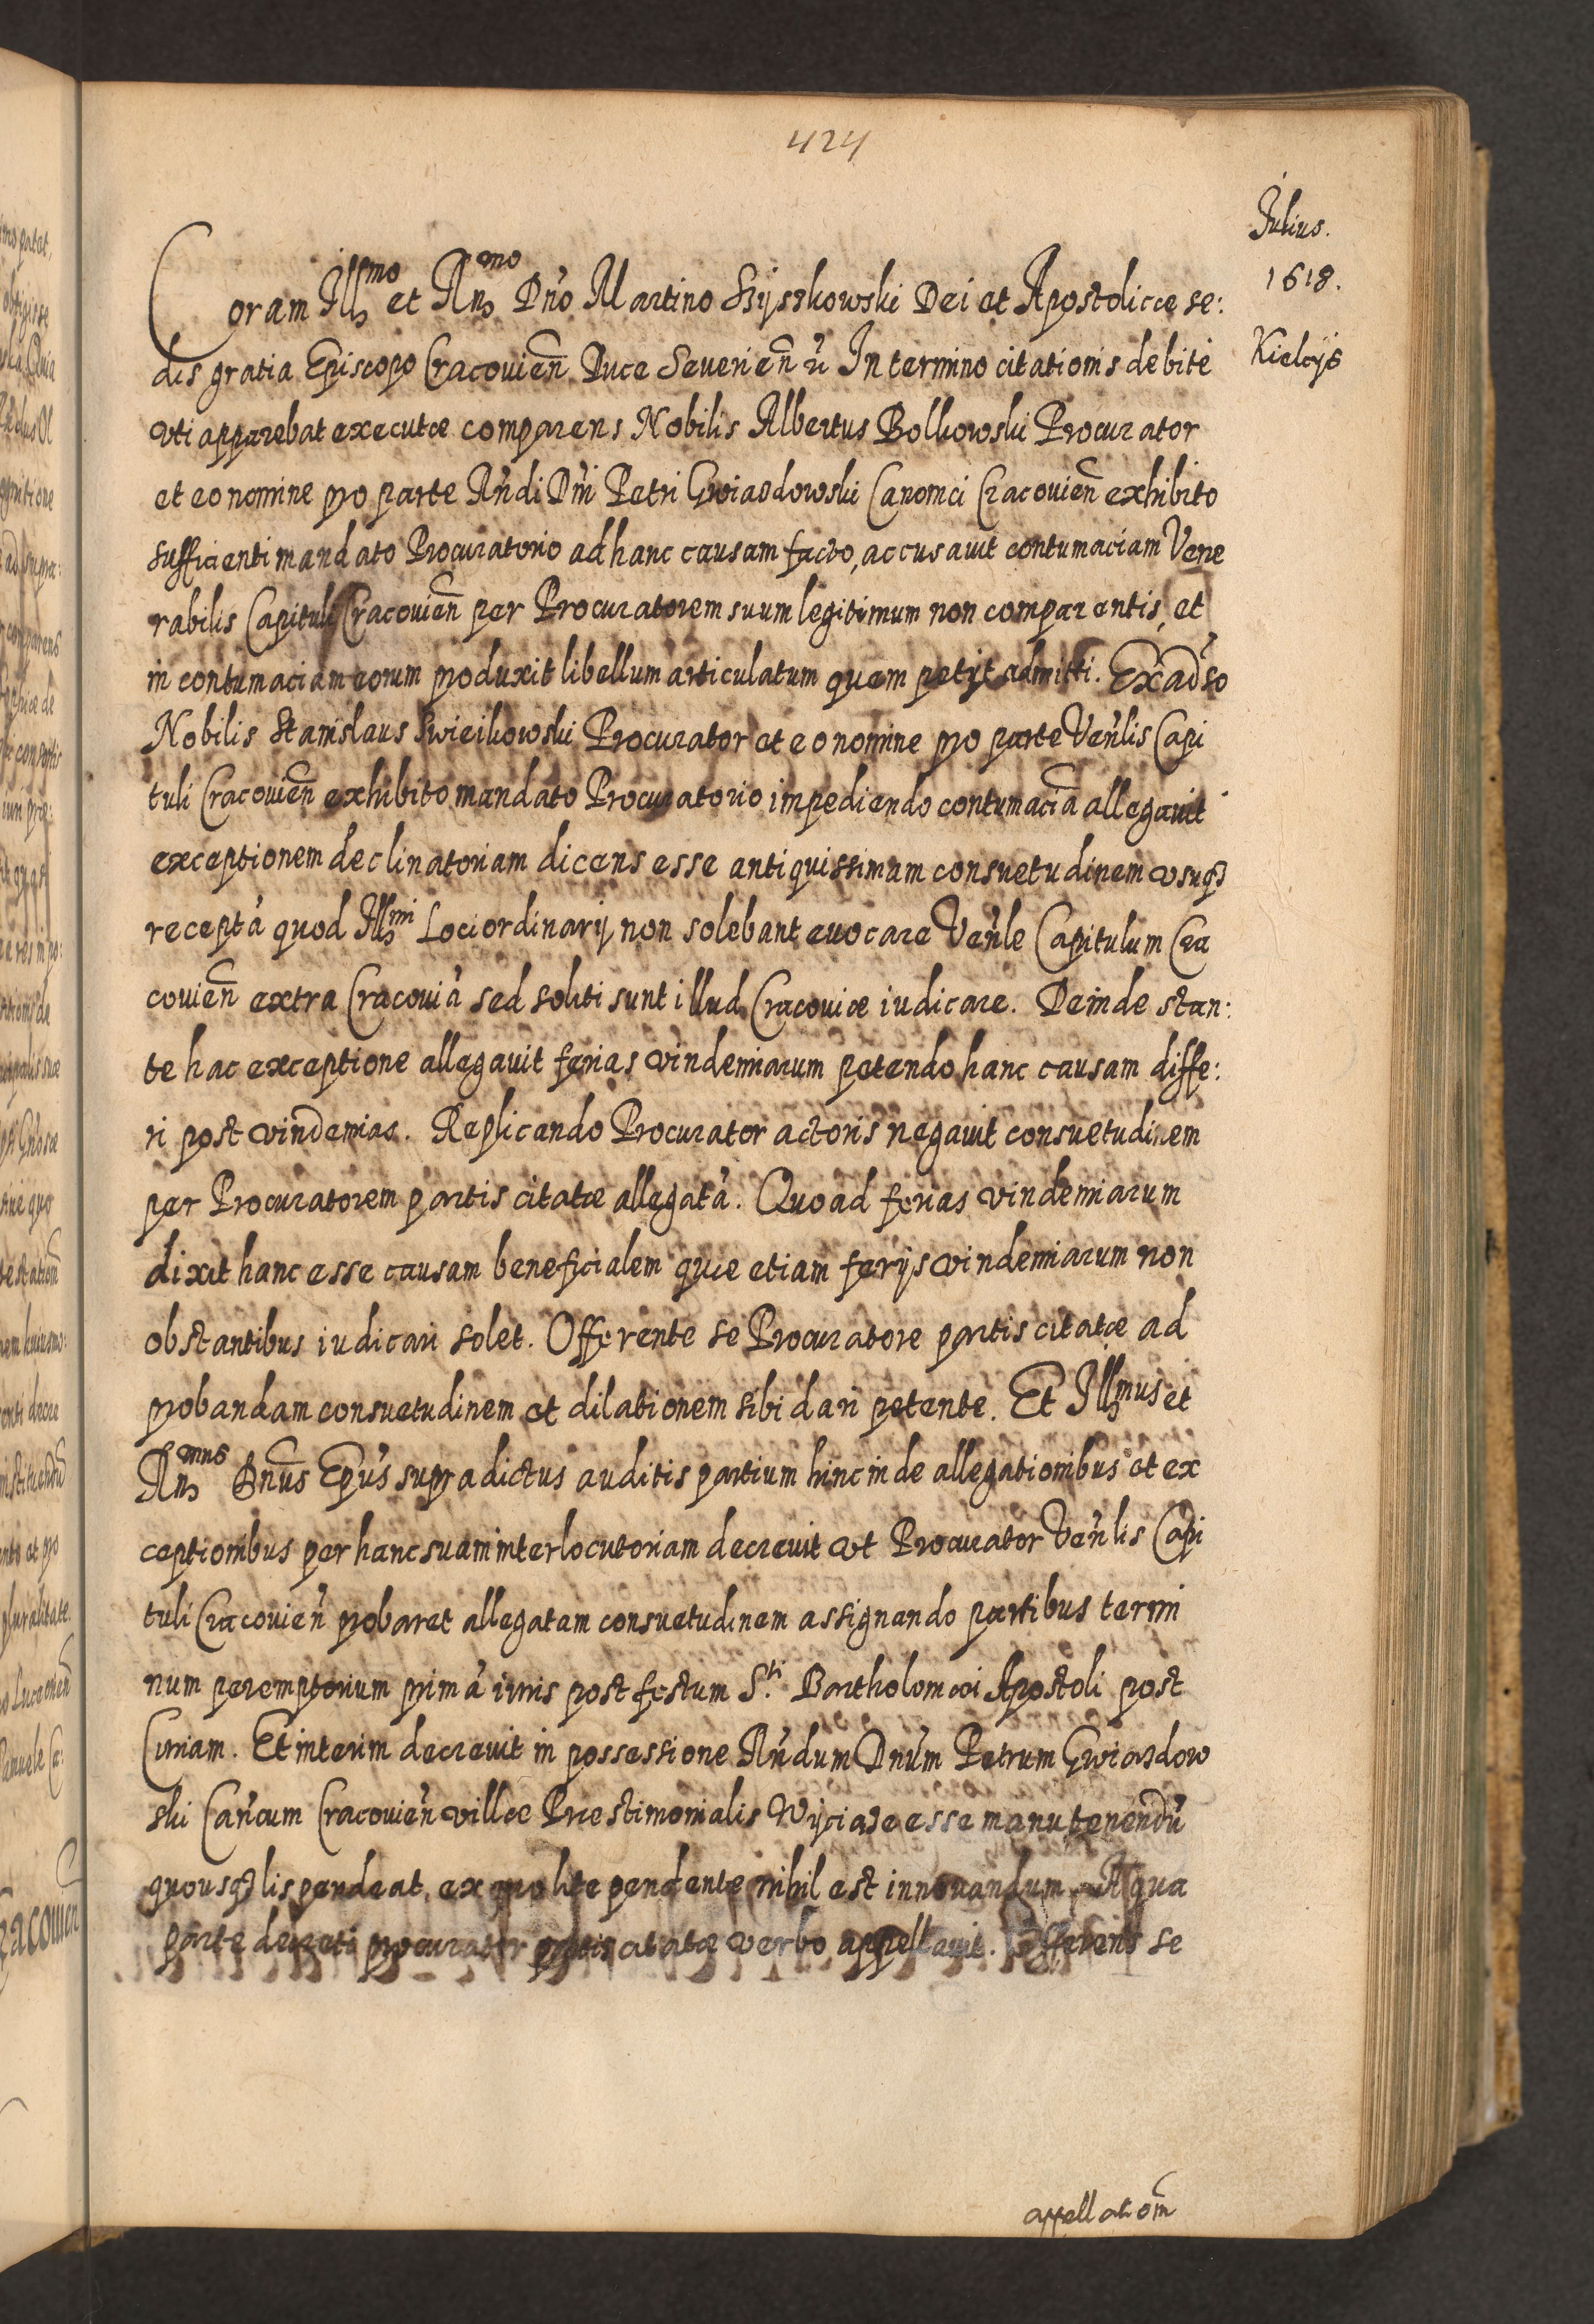 424
Julius.
1618.
Kielcijs
Coram Illmo et Rndmo Dño Martino Szyszkowski Dei et Apostolicæ se:
dis gratia Episcopo Cracovień Duce Severień &c In termino citationis debitè
vti apparebat executæ comparens Nobilis Albertus Bolkowski Procurator
et eo nomine pro parte Rńdi Dńi Petri Gwiazdowski Canonici Cracovień exhibito
sufficienti mandato Procuratorio ad hanc causam facto, accusauit contumaciam Vene
rabilis Capituli Cracovień per Procuratorem suum legitimum non comparentis, et
in contumaciam eorum produxit libellum articulatum quem petijt admitti. Ex adso
Nobilis Stanislaus Swieikowski Procurator et eo nomine pro parte Veńlis Capi
tuli Cracovień exhibito mandato Procuratorio impediendo contumaciã allegauit
exceptionem declinatoriam dicens esse antiquissimam consuetudinem vsuq3
receptã quod Illmi Loci ordinarij non solebant euocare Veńle Capitulum Cra
couień extra Cracouiã sed soliti sunt illud Cracouiæ iudicare. Deinde stan:
te hac exceptione allegauit ferias vindemiarum petendo hanc causam diffe:
ri post vindemias. Replicando Procurator actoris negauit consuetudinem
per Procuratorem partis citatæ allegatã. Quo ad ferias vindemiarum
dixit hanc esse causam beneficialem quæ etiam ferijs vindemiarum non
obstantibus iudicari solet. Offerente se Procuratore partis citatæ ad
probandam consuetudinem et dilationem sibi dari petente. Et Illmus et
Rndmus Dnus Epus supradictus auditis partium hinc inde allegationibus et ex
ceptionibus per hanc suam interlocutoriam decreuit vt Procurator Veńlis Capi
tuli Cracouień probaret allegatam consuetudinem assignando partibus termi
num peremptorium primã iuris post festum Sti Bartholomæi Apostoli post
Curiam. Et interim decreuit in possessione Rńdum Dnum Petrum Gwiazdow
ski Cańcum Cracouień villæ Præstimonialis Wyciaze esse manutenendũ
quousq3 lis pendeat, ex quo lite pendente nihil est innouandum. A qua
parte decreti procurator partis citatæ verbo appellauit. Offerens se
appellationem